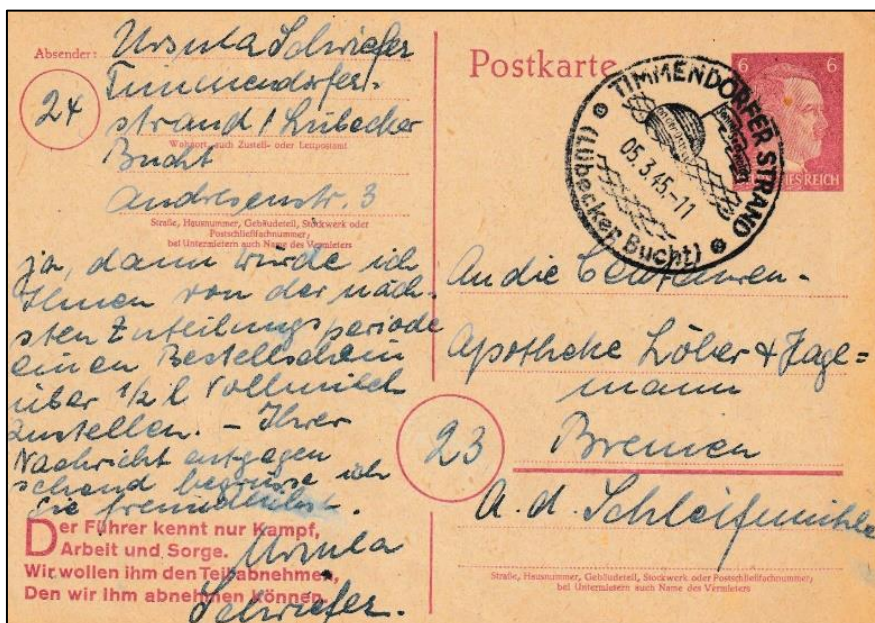 Absender: Ursula Schriefer
24 Timmendorfer-
strand / Lübecker
Wohnort, auch Zustell- oder Leitpostamt
Bucht
Andresenstr. 3
Straße, Hausnummer, Gebäudeteil, Stockwerk oder
Postschließfachnummer;
bei Untermietern auch Name des Vermieters
ja, dann würde ich
Ihnen von der näch-
sten Zuteilungsperiode
einen Bestellschein
über 1/2 l Vollmilch
zustellen. – Ihrer
Nachricht entgegen
sehend begrüsse ich
Sie freundlichst.
Ursula
Schriefer.
Der Führer kennt nur Kampf,
Arbeit und Sorge.
Wir wollen ihm den Teil abnehmen,
Den wir ihm abnehmen können.
Postkarte
6 6
REICH
TIMMENDORFER STRAND
05.3.45.-11
(Lübecker Bucht)
An die Centauren-
Apotheke Löber & Hage=
mann
23 Bremen
A. d. Schleifmühle
Straße, Hausnummer, Gebäudeteil, Stockwerk oder Postschließfachnummer;
bei Untermietern auch Name des Vermieters